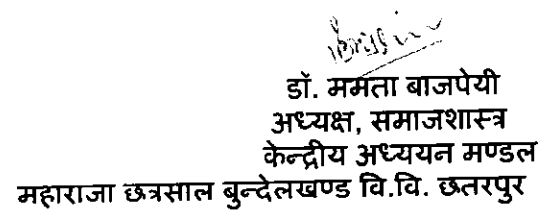 डॉ. ममता बाजपेयी
अध्यक्ष, समाजशास्त्र
केन्द्रीय अध्ययन मण्डल
महाराजा छत्रसाल बुन्देलखण्ड वि.वि. छतरपुर